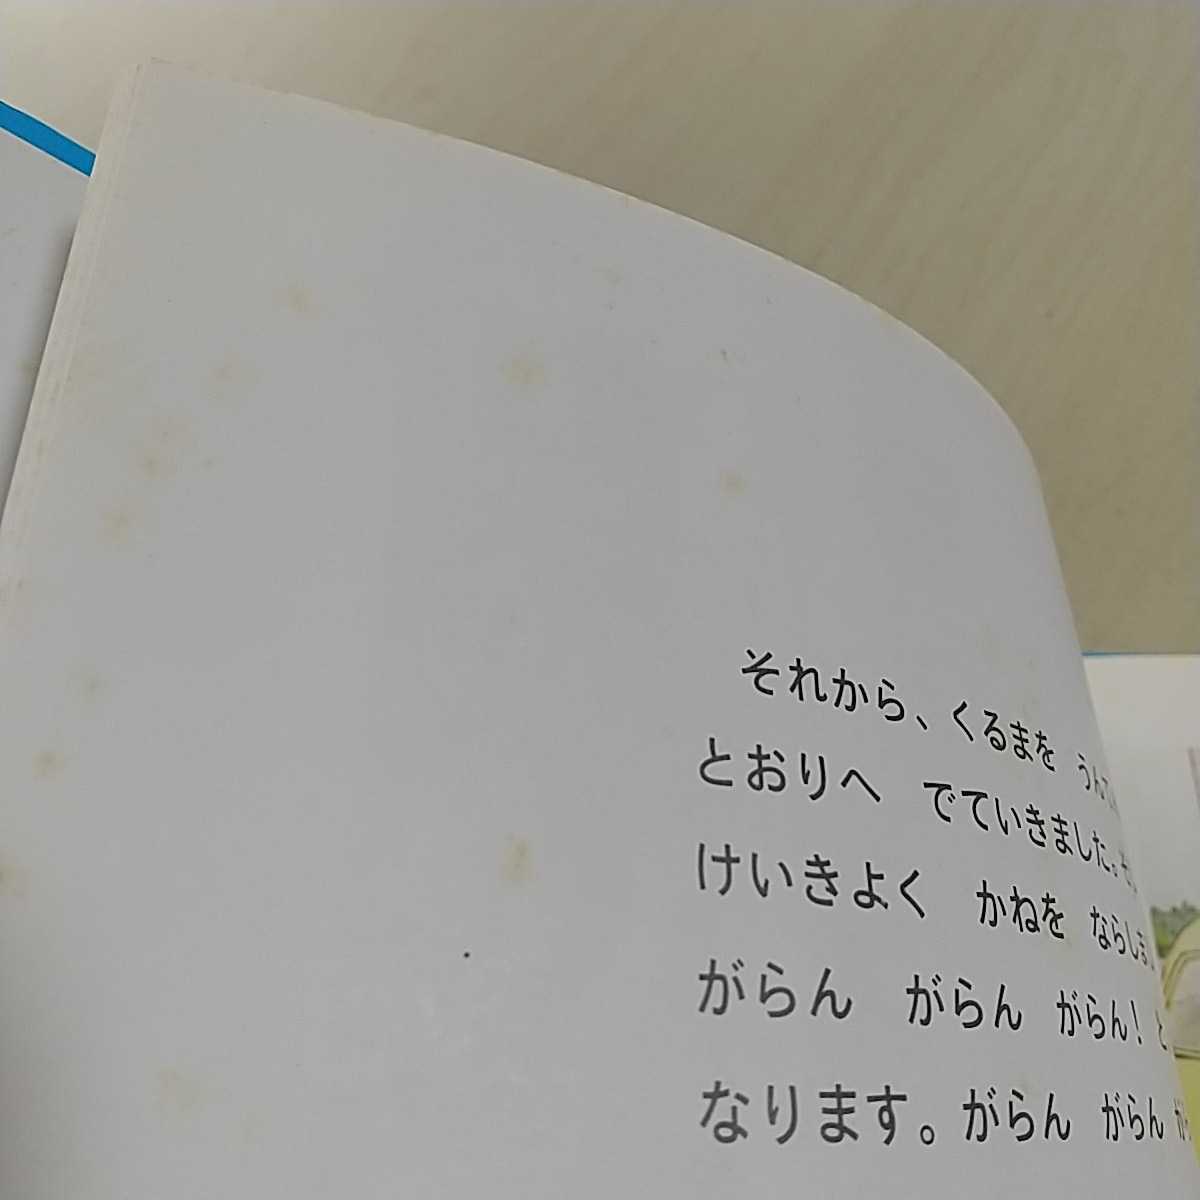 それから、くるまを うんてん
とおりへ でていきました。そ
けいきよく かねを ならしまし
がらん がらん がらん! と
なります。がらん がらん が